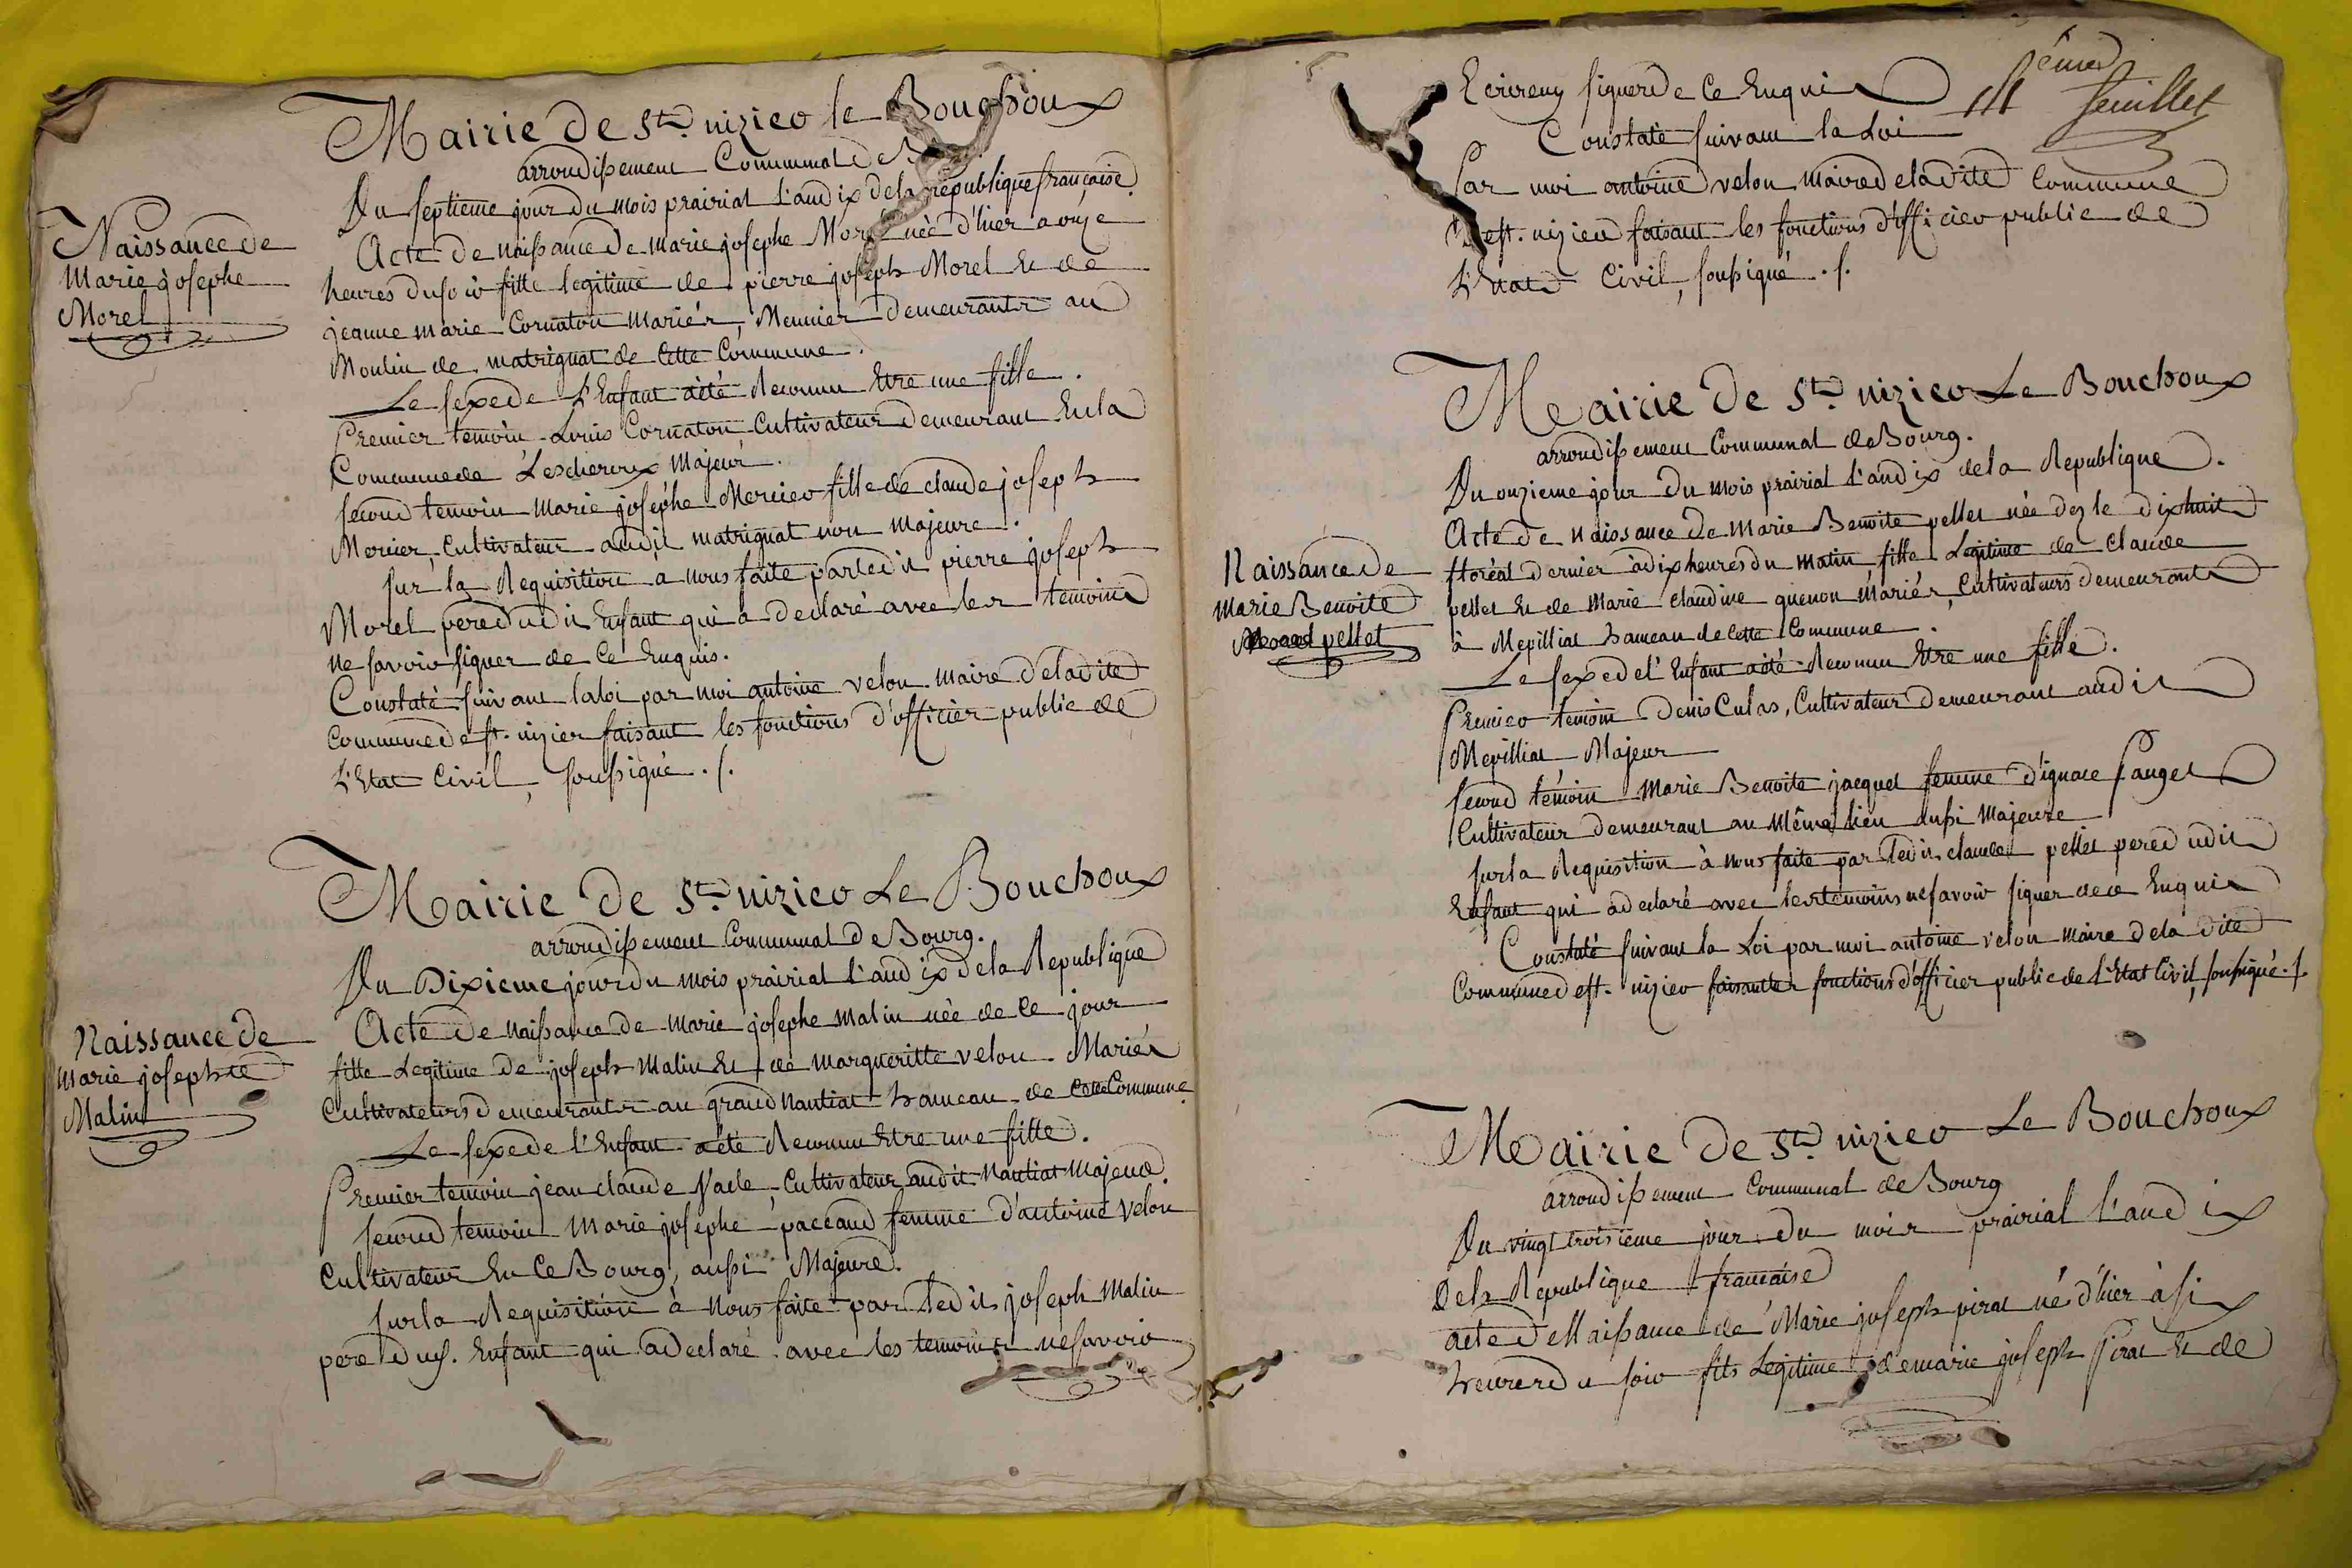 Mairie de St. nizier le Bouchoux
arrondissement Communal de B
Du septieme jour du mois prairial l'an dix de la republique francaise.
Naissance de
Marie josephe
Morel
Acte de naissance de marie josephe Morel née d'hier a onze
heures du soir fille legitime de pierre joseph Morel Et de
jeanne marie Cornaton mariés, Meunier demeurants au
Moulin de matrignat de Cette Commune.
Le sexe de L'Enfant a été Reconnu Etre une fille.
Premier temoin Louis Cornaton Cultivateur demeurant En la
Commune de Lescheroux Majeur.
second temoin marie josephe Mercier fille de claude joseph
Mercier, Cultivateur audit matrignat non majeure.
sur la Requisition a nous faite par ledit pierre joseph
Morel pere dudit Enfant qui a declaré avec les temoins
ne savoir signer de Ce Enquis.
Constaté suivant la loi par moi antoine velon maire de la dite
Commune de st. nizier faisant les fonctions d'officier public de
L'Etat Civil, soussigné ./.
Mairie de St. nizier Le Bouchoux
arrondissement Communal de Bourg.
Du Dixieme jour du mois prairial l'an dix de la Republique
Naissance de
marie josephte
Malin
Acte de naissance de marie josephe malin née de Ce jour
fille Legitime de joseph malin Et de margueritte velon Mariés
Cultivateurs demeurants au grand nantiat hameau de Cette Commune.
Le sexe de l'Enfant a été Reconnu Etre une fille.
Premier temoin jean claude Vacle, Cultivateur audit Nantiat Majeur.
second temoin Marie josephe paccaud femme d'antoine velon
Cultivateur En Ce Bourg, aussi Majeure.
sur la Requisition à Nous faite par Ledit joseph malin
pere dud. Enfant qui a declaré avec les temoins ne savoir
feuillet
Ecrire ny signer de Ce Enquis
Constaté suivant la Loi
Par moi antoine velon maire de la dite Commune
De st. nizier faisant les fonctions d'officier public de
L'Etat Civil, soussigné ./.
Mairie de St. nizier Le Bouchoux
arrondissement Communal de Bourg.
Du onzieme jour Du mois prairial l'an dix de la Republique.
Naissance de
marie Benoite
pellet
Acte de Naissance de Marie Benoite pellet née dez le dixhuit
floréal dernier à dix heures du matin fille Legitime de Claude
pellet Et de Marie claudine quenon mariés, Cultivateurs demeurants
à Mepilliat hameau de Cette Commune.
Le sexe de l'Enfant a été Reconnu Etre une fille.
Premier temoin Denis Culas, Cultivateur demeurant audit
Mepilliat Majeur
second temoin Marie Benoite jacquet femme d'ignace Panget
Cultivateur demeurant au Même Lieu aussi Majeure
sur la Requisition à Nous faite par Ledit claude pellet pere dudit
Enfant qui a declaré avec les temoins ne savoir signer de ce Enquis
Constaté suivant la Loi par moi antoine velon maire de la dite
Commune de st. nizier faisant les fonctions d'officier public de L'Etat Civil, soussigné ./.
Mairie de St. nizier Le Bouchoux
arrondissement Communal de Bourg
Du vingt troisieme jour du mois prairial l'an dix
De la Republique francaise
acte de Naissance de Marie joseph pirat né d'hier à six
heures du soir fils Legitime de marie joseph Pirat Et de